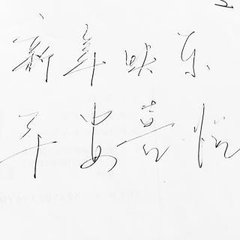 新年快乐
平安喜悦